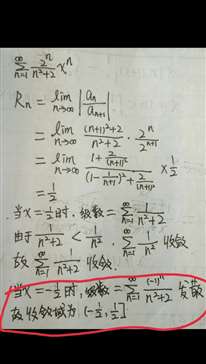 ∑_{n=1}^{∞} \frac{2^n}{n^2+2} x^n
R_n = \lim_{n→∞} |\frac{a_n}{a_{n+1}}|
= \lim_{n→∞} \frac{(n+1)^2+2}{n^2+2} · \frac{2^n}{2^{n+1}}
= \lim_{n→∞} \frac{1+\frac{2}{(n+1)^2}}{(1-\frac{1}{n+1})^2+\frac{2}{(n+1)^2}} × \frac{1}{2}
= \frac{1}{2}
当x=\frac{1}{2}时,级数=∑_{n=1}^{∞} \frac{1}{n^2+2}
由于 \frac{1}{n^2+2} < \frac{1}{n^2}, ∑_{n=1}^{∞} \frac{1}{n^2} 收敛
故 ∑_{n=1}^{∞} \frac{1}{n^2+2} 收敛.
当x=-\frac{1}{2}时,级数=∑_{n=1}^{∞} \frac{(-1)^n}{n^2+2} 发散
故收敛域为 (-\frac{1}{2}, \frac{1}{2}]